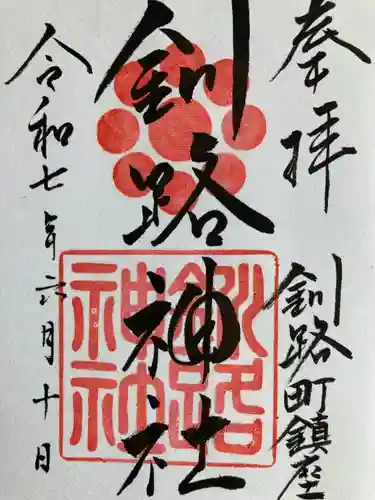 奉拝
釧路町鎮座
釧路神社
釧路神社
令和七年六月十日